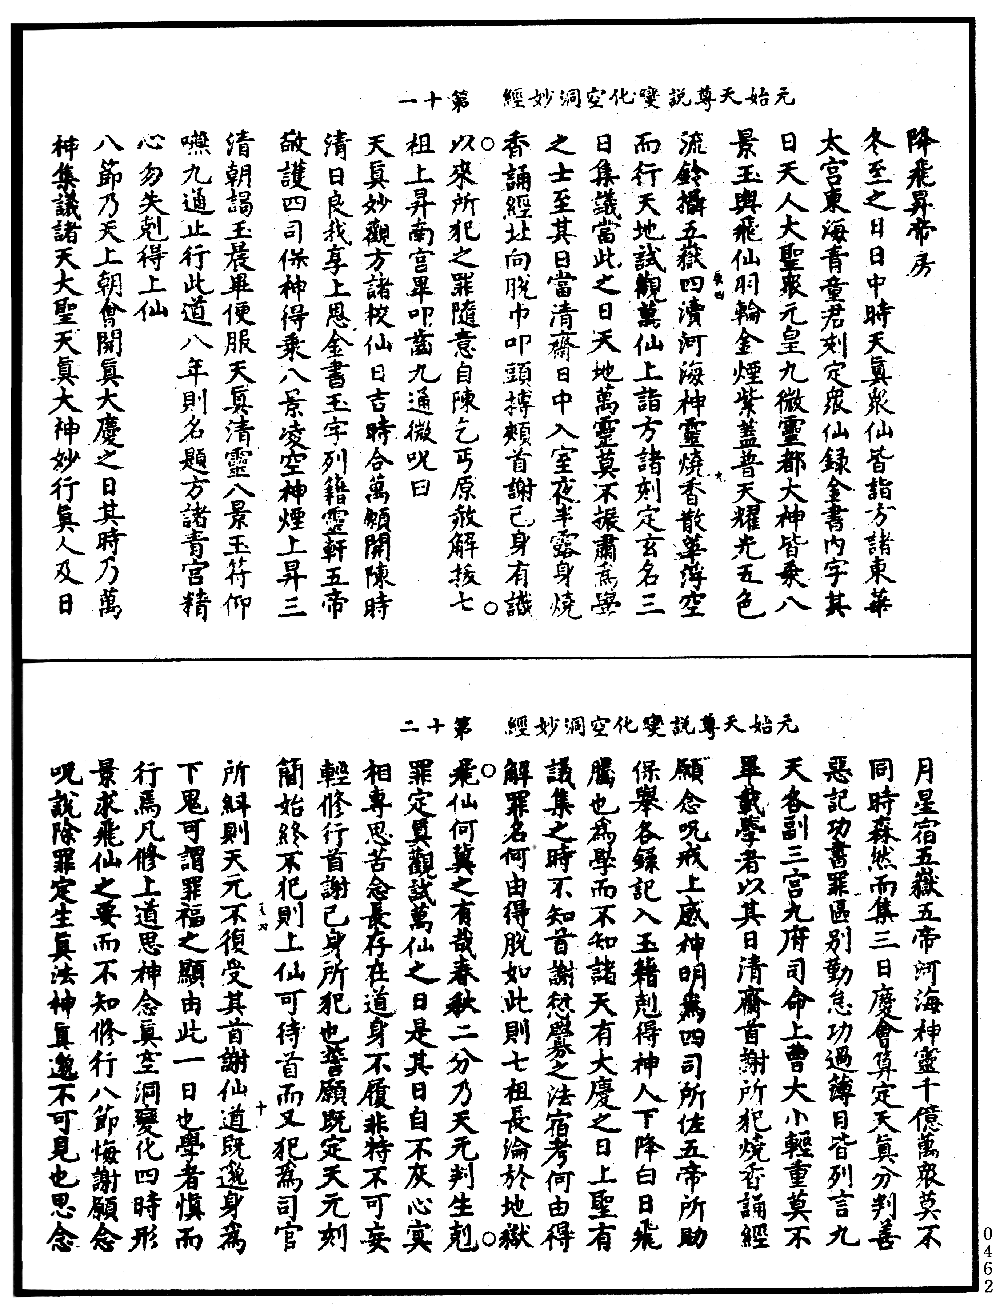 元始天尊說變化空洞妙經　第十一
降飛昇帝房
冬至之日日中時天真衆仙皆詣方諸東華
太宫東海青童君刻定衆仙録金書内字其
日天人大聖衆元皇九微靈都大神皆乗八
景玉輿飛仙羽輪金煙紫蓋普天耀光五色
流鈴攝五嶽四瀆河海神靈燒香散華浮空
而行天地試觀萬仙上詣方諸刻定玄名三
日集議當此之日天地萬靈莫不振肅為學
之士至其日當清齋日中入室夜半露身燒
香誦經北向脱巾叩頭搏頰首謝己身有識
以來所犯之罪隨意自陳乞丐原赦解拔七
祖上昇南宫畢叩齒九通微呪曰
天真妙觀方諸校仙日吉時合萬願開陳時
清日良我享上恩金書玉字列籍靈軒五帝
敬護四司保神得乗八景凌空神煙上昇三
清朝謁玉晨畢便服天真清靈八景玉符仰
嚥九通止行此道八年則名題方諸青宫精
心勿失剋得上仙
八節乃天上朝會開真大慶之日其時乃萬
神集議諸天大聖天真大神妙行真人及日
元始天尊說變化空洞妙經　第十二
月星宿五嶽五帝河海神靈千億萬衆莫不
同時森然而集三日慶會算定天真分判善
惡記功書罪區别勤怠功過簿目皆列言九
天各副三宫九府司命上曹大小輕重莫不
畢載學者以其日清齋首謝所犯燒香誦經
願念呪戒上感神明為四司所佐五帝所助
保舉各録記入玉籍剋得神人下降白日飛
騰也為學而不知諸天有大慶之日上聖有
議集之時不知首謝愆釁之法宿考何由得
解罪名何由得脱如此則七祖長淪於地獄
飛仙何冀之有哉春秋二分乃天元判生剋
罪定真觀試萬仙之日是其日自不灰心㝠
相專思苦念最存在道身不履非特不可妄
輕修行首謝己身所犯也誓願既定天元刻
簡始終不犯則上仙可待首而又犯為司官
所糾則天元不復受其首謝仙道既邈身為
下鬼可謂罪福之顯由此一日也學者慎而
行為凡修上道思神念真空洞變化四時形
景求飛仙之要而不知修行八節悔謝願念
呪說除罪定生真法神真邈不可見也思念
0462